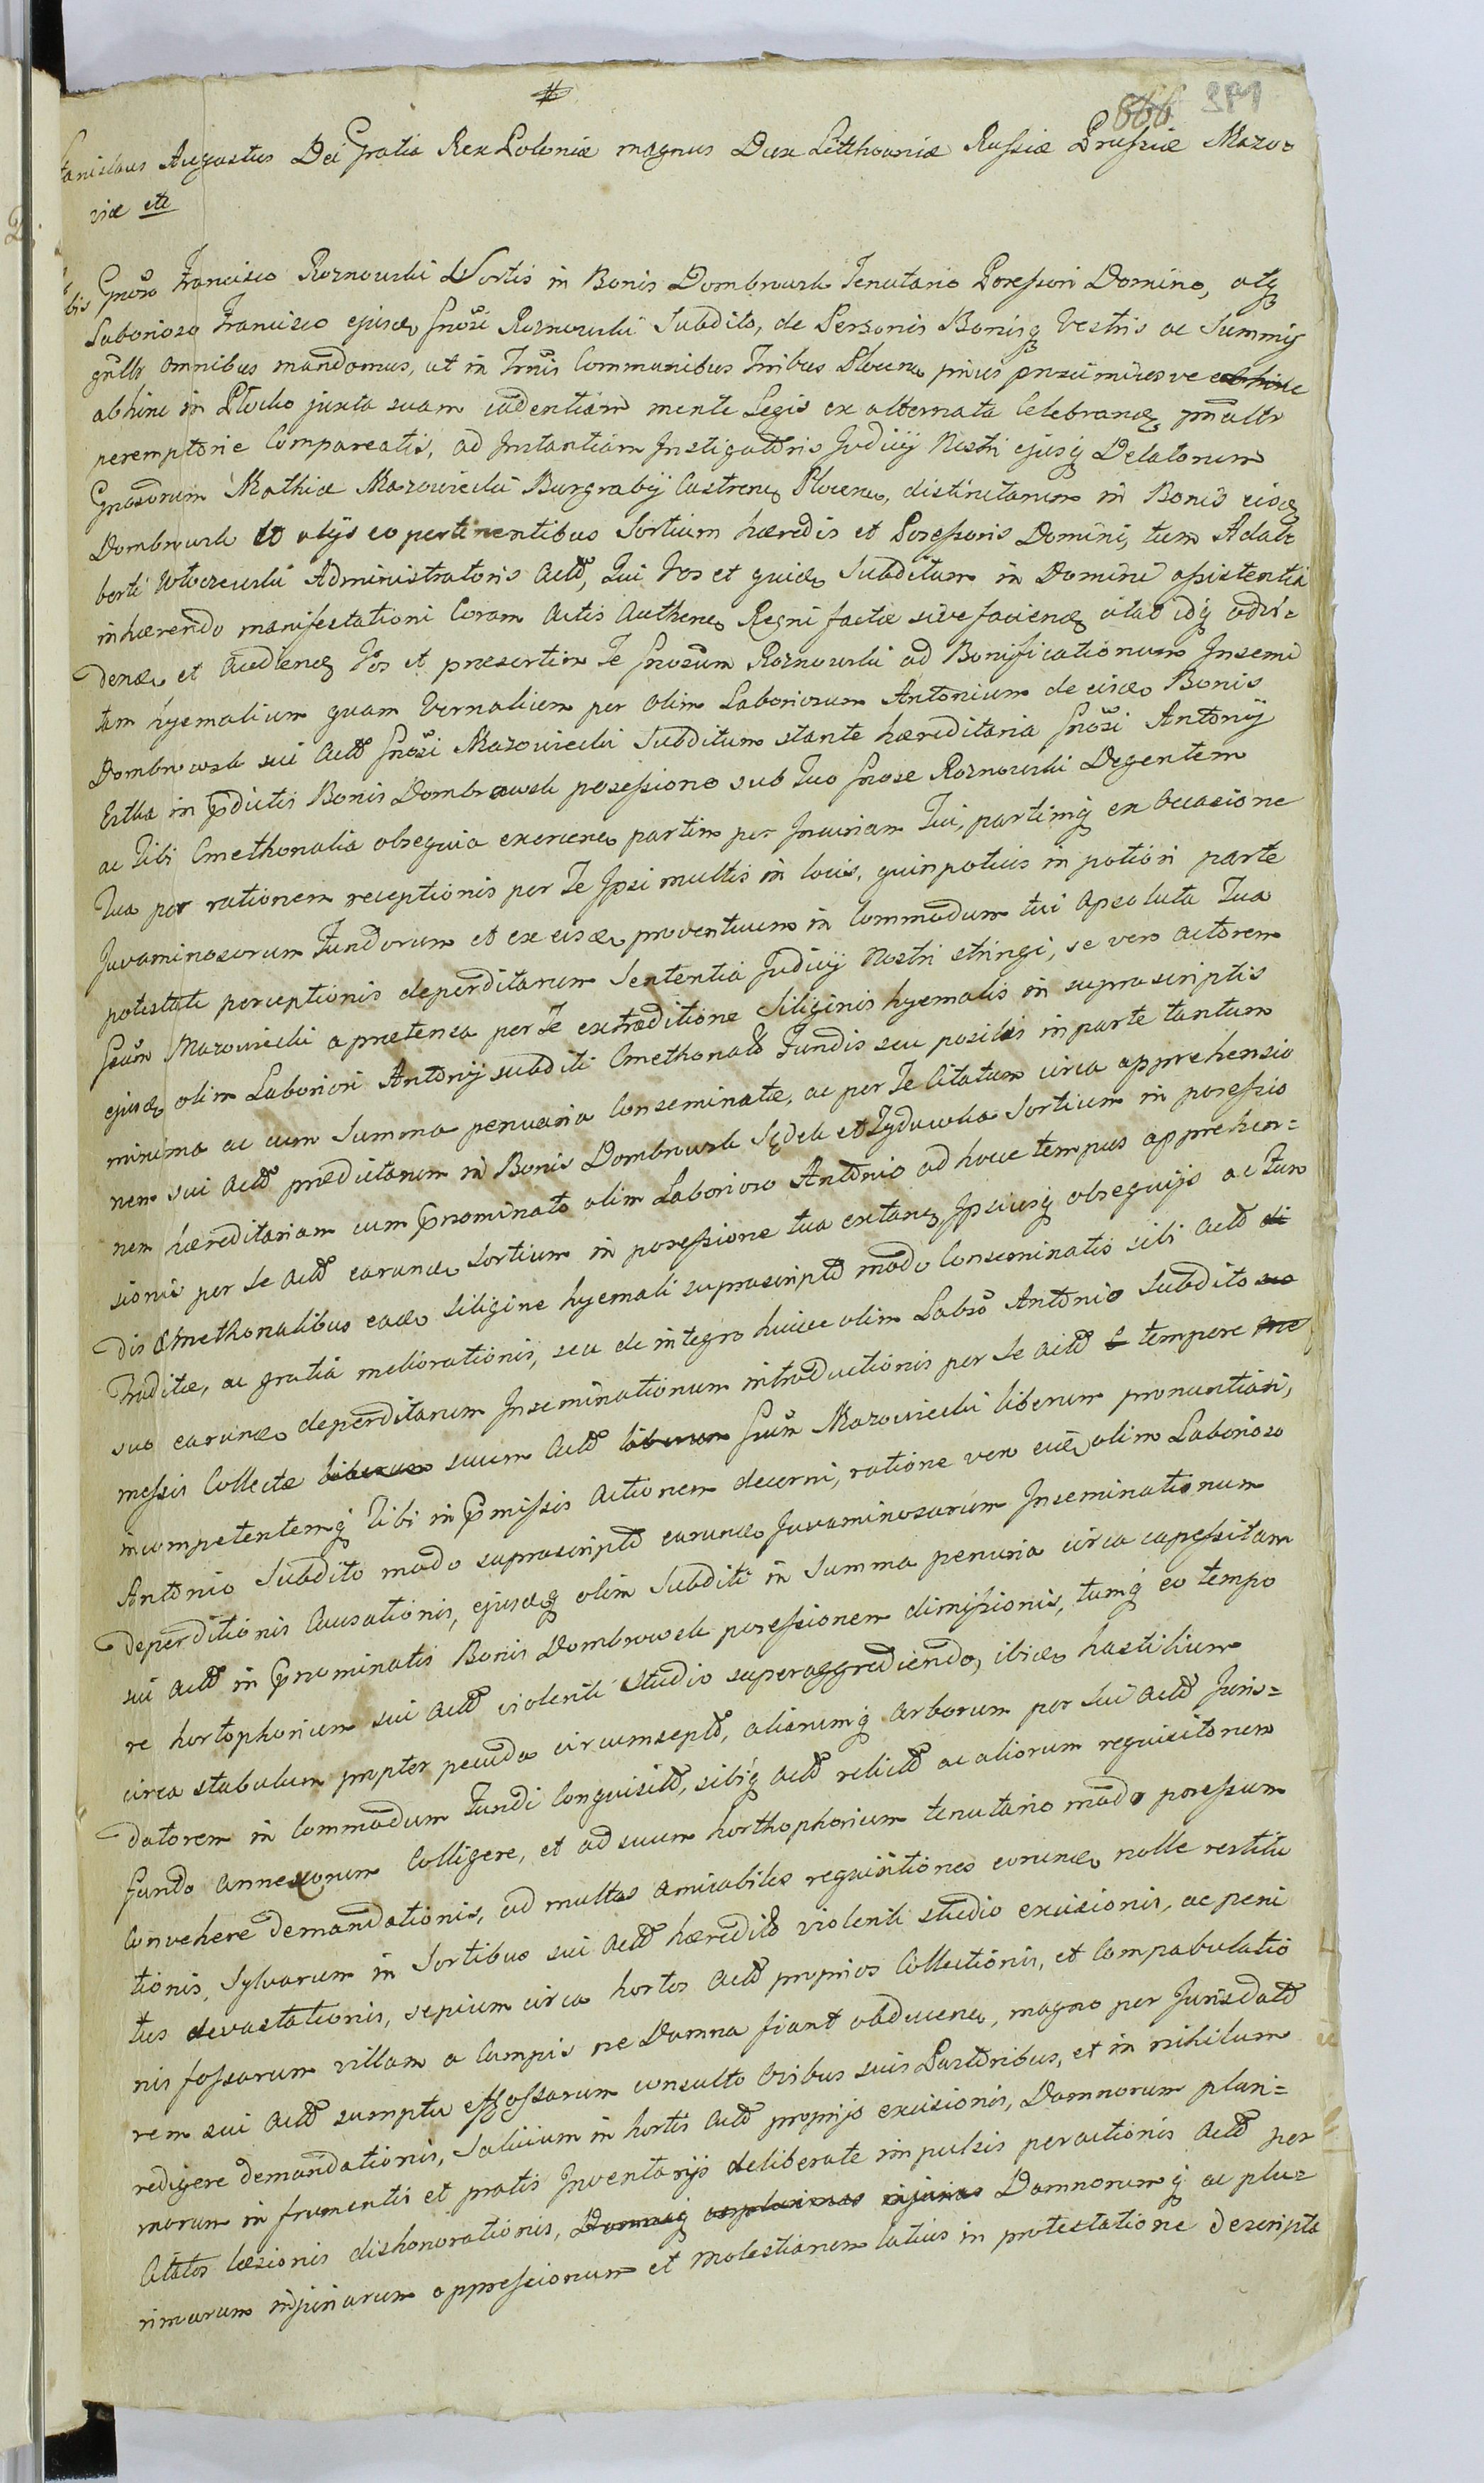 #
666 381
tanislaus Augustus Dei Gratia Rex Poloniæ magnus Dux Litthvaniæ Russiæ Prussiæ Mazo=
viæ etc
bis Gnoso Francisco Roznowski Sortis in Bonis Dombrowsk Tenutario Possessori Domino, atq
Laborioso Francisco ejusd Gnosi Roznowski Subdito, de Personis Bonisq Vestris ac Summis
gnltr omnibus mandamus, ut in Trnis Communibus Tribus Plocen prius
abhinc in Plocko juxta suam cadentiam mente Legis ex alternata Celebrand
peremptorie Compareatis, ad Instantiam Instigatoris Judicij Nostri ejusq Delatorum
Gnosorum Mathiæ Mazowiecki Burgrabij Castren Plocen, distinctarum in Bonis eisd
Dombrowsk et alijs eo pertinentibus Sortium hæredis et Possessoris Domini, tum Adal=
berti Administratoris Actt, Qui Vos et quid Subditum in Domini assistentia
inhærendo manifestationi Coram Actis Authen Regni factæ sive faciend citat idq ad vi=
dend et Audiend Vos et præsertim Te Gnosum Roznowski ad Bonificationum Insemi
tam hyemalium quam Vernalium per olim Laboriosum Antonium de eisd Bonis
Dombrowsk sui Actt Gnosi Mazowiecki Subditum stante hæreditaria Gnosi Antonij
in Pdictis Bonis Dombrowsk possessione sub Tuo Gnose Roznowski Degentem
ac Tibi Cmethonalia obsequia exercen partim per Incuriam Tui, partimq ex Occasione
Tua per rationem receptionis per Te Ipsi multis in locis, quinpotius in potiori parte
Juvaminosorum Fundorum et ex eisd proventuum in Commodum tui absoluta Tua
potestate perceptionis deperditarum Sententia Judicij Nostri stringi, se vero actorem
Gnosum Mazowiecki a prætensa per Te extraditione Siliginis hyemalis in suprascriptis
ejusd olim Laboriosi Antonij subditi Cmethonalt Fundis seu posiktis in parte tantum
minima ac cum Summa penuaria Conseminatæ, ac per Te Citatum circa apprehensio
nem sui Actt prædictarum in Bonis Dombrowsk Sędek et Zyduwka Sortium in possessio
nem hæreditariam cum Pnominato olim Laborioso Antonio ad hocce tempus apprehen=
sionis per se Actt earund Sortium in possessione tua extan Ipsiusq obsequijs ac Fun
dis Cmethonalibus ead siligine hyemali suprascripto modo Conseminatis sibi Actt di
Traditæ, ac gratia meliorationis, seu de integro huicce olim Labso Antonio Subdito suo
suo earund deperditarum Inseminationum introductionis per se Actt tempore
messis Collectæ liberum suum Actt liberum Gnosum Mazowiecki liberum pronuntiari,
incompetentemq Tibi in Pmissis Actionem decerni, ratione vero olim Laborioso
Antonio Subdito modo suprascripto earund Juvaminosarum Inseminationum
deperditionis Causationis, ejusdq olim Subditi in Summa penuria circa capessitam
sui Actt in Pnominatis Bonis Dombrowsk possessionem dimissionis, tumq eo tempo
re hortophorium sui Actt violenti studio superaggrediendo, ibid hastilium
circa stabulum propter pecuda circumsept, aliarumq arborum per sui Actt Juris=
datorem in Commodum Fundi Conquisit, sibiq Actt relict ac aliorum requisitorum
fundo annexorum Colligere, et ad suum horthophorium tenutario modo possessum
Convehere Demandationis, ad multas amicabiles requisitiones eorund nolle restitu
tionis, Sylvarum in Sortibus sui Actt hæredit violenti studio excisionis, ac peni
tus devastationis, sepium circa hortos Actt proprios Collectionis, et Compabulatio
nis fossarum villam a Campis ne Damna fiant obducen, magno per Jurisdatt
rem sui Actt sumptu effossarum consulto Ovibus suis Pastoribus, et in nihilum
redigere demandationis, Salicum in hortis Actt proprijs excisionis, Damnorum pluri=
morum in frumentis et pratis Inventarijs deliberate impulsis peractionis Actt per
Citatos læsionis dishonorationis, Damnorumq ac plu=
rimarum injuriarum oppressionum et molestiarum latius in protestatione descripta